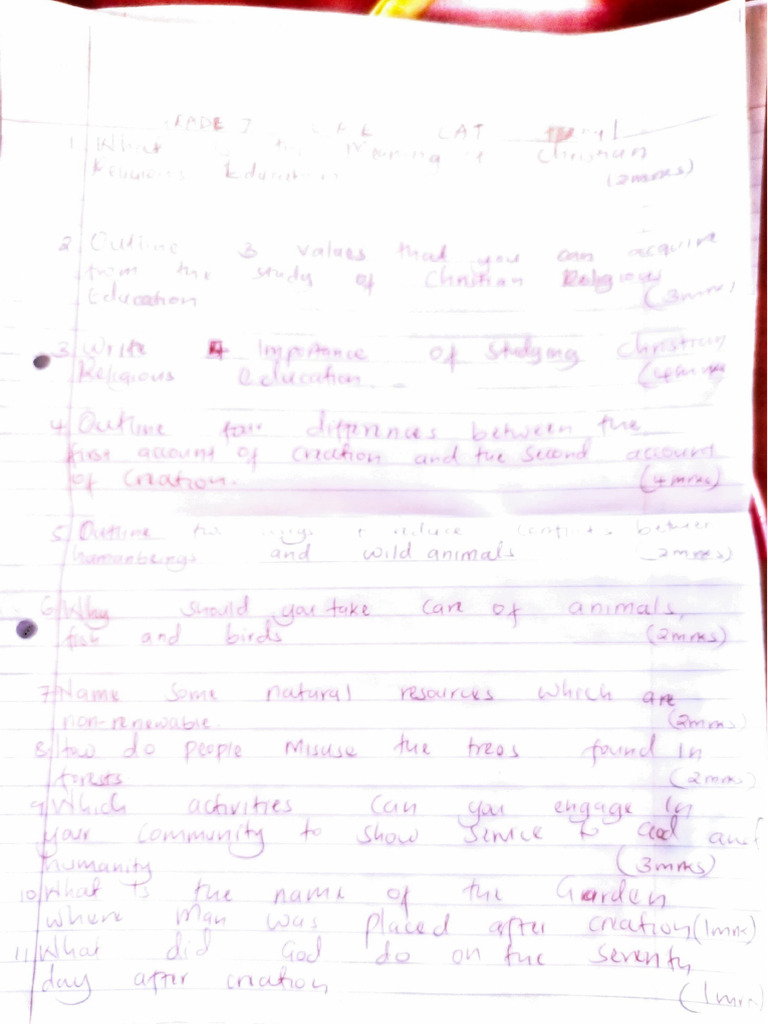 GRADE 7 CRE CAT
1 What is the meaning of Christian
Religious Education (2mrks)
2 Outline 3 values that you can acquire
from the study of Christian Religious
Education (3mrks)
3 Write 4 Importance of studying Christian
Religious Education. (4mrks
4 Outline four differences between the
first account of creation and the second account
of Creation. (4mrks)
5 Outline two ways to reduce conflicts between
humanbeings and wild animals (2mrks)
6 Why should you take care of animals,
fish and birds (2mrks)
7 Name some natural resources which are
non-renewable. (2mrks)
8 How do people misuse the trees found in
forests (2mrks)
9 Which activities can you engage in
your community to show service to God and
humanity (3mrks)
10 What is the name of the Garden
where man was placed after creation (1mrk)
11 What did God do on the seventy
day after creation (1mrk)